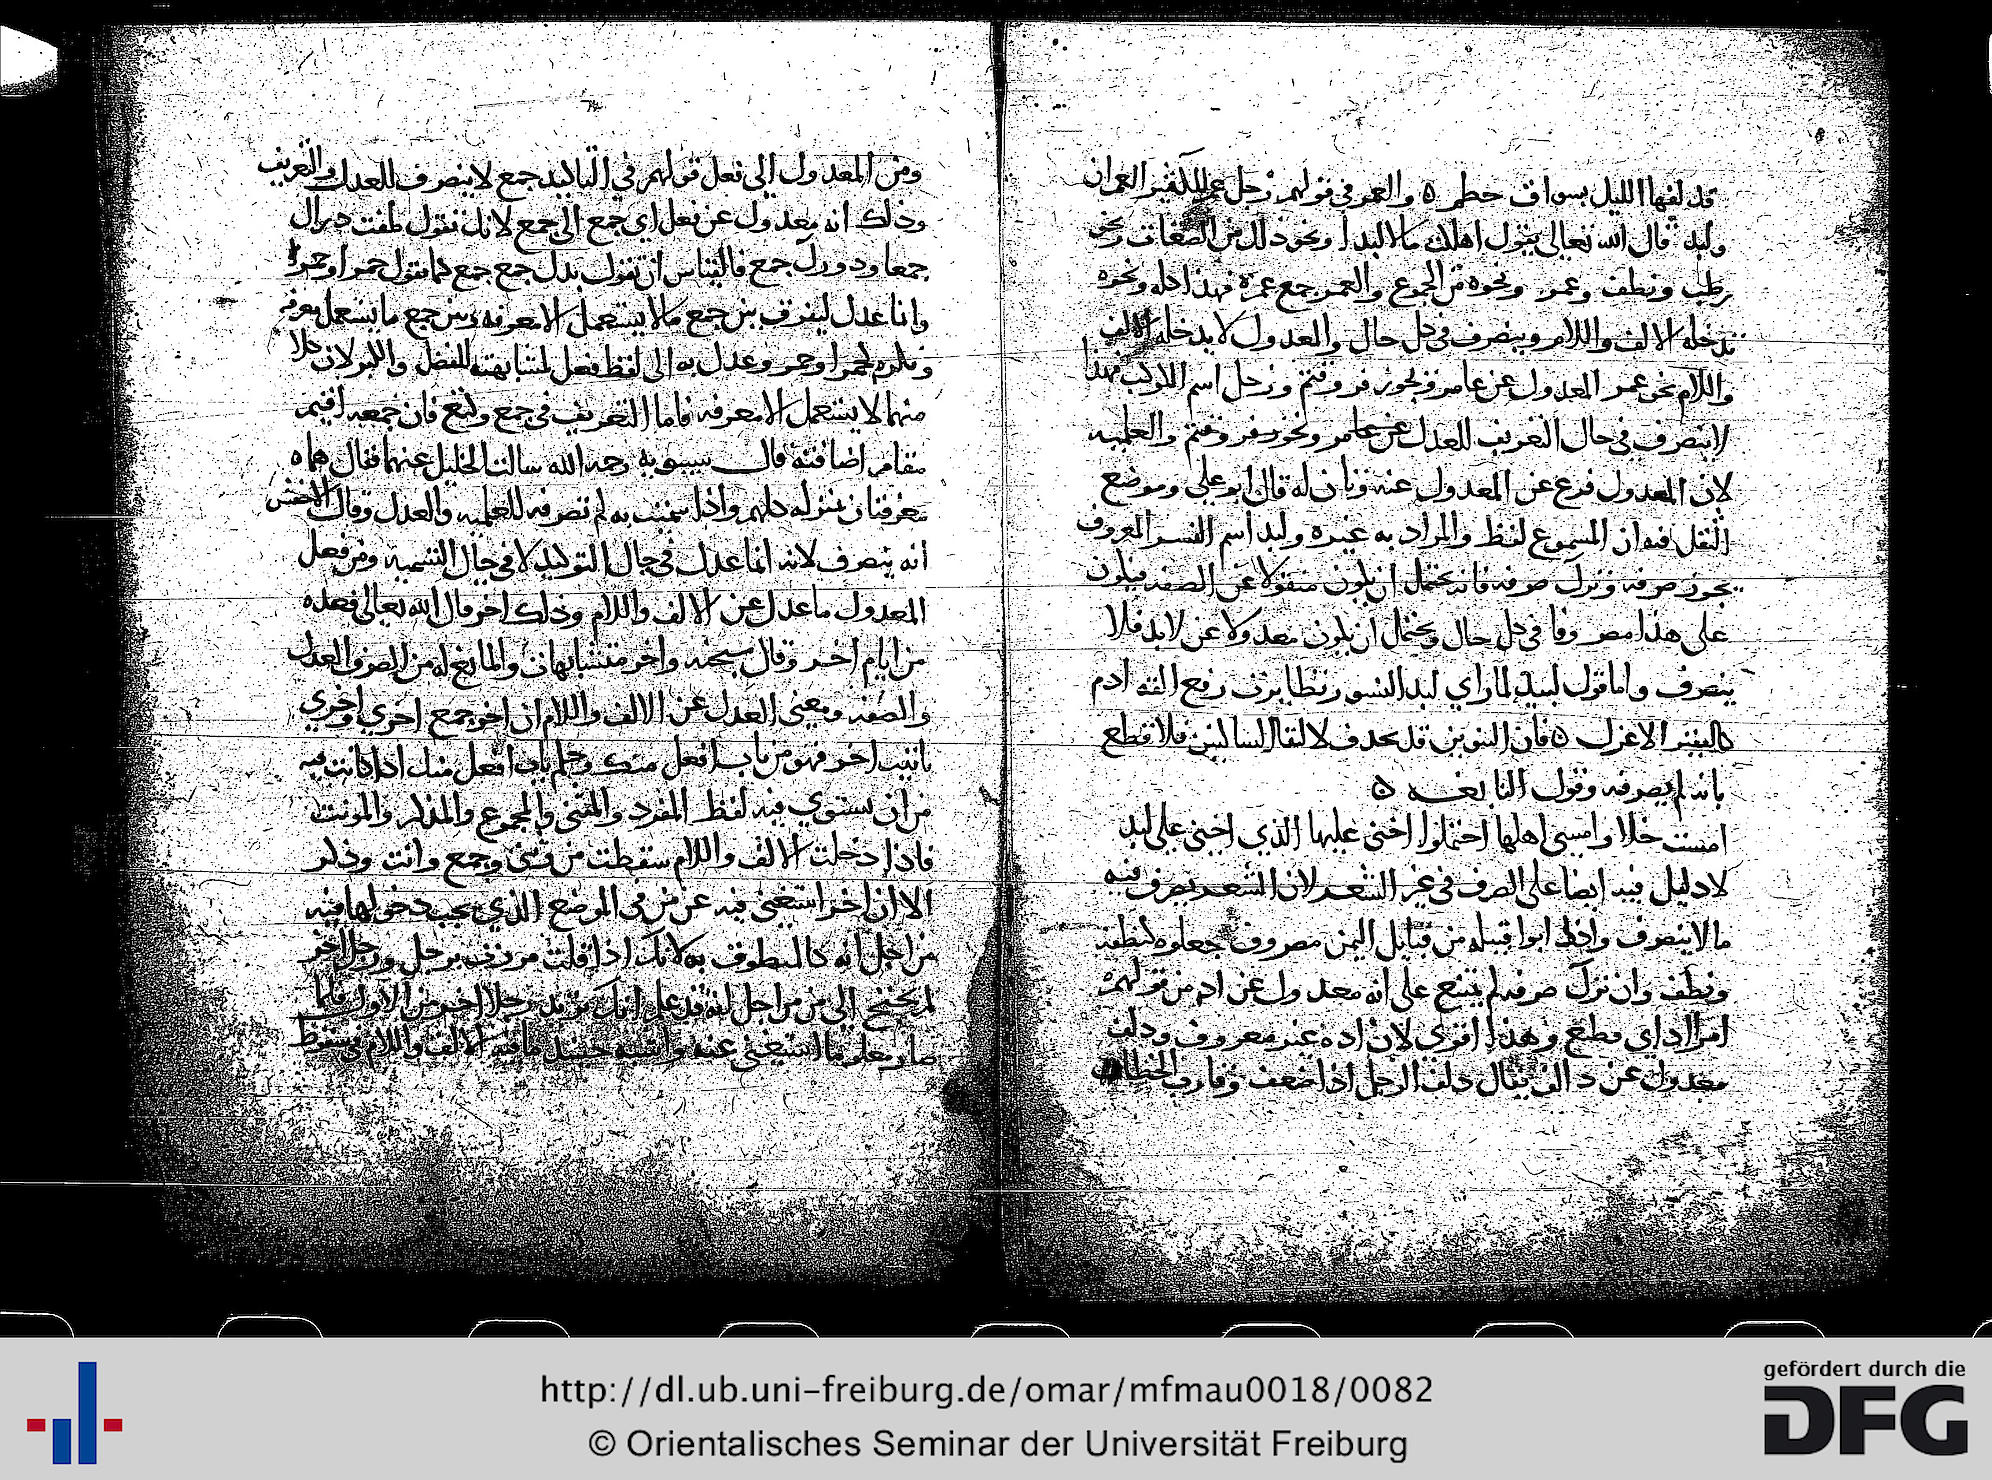 قد لفها الليل بسواق حطم ه والعمر في قولهم رجل عمر للكثير العمران
ولبد قال الله تعالى يقول اهلكت مالا لبدا ونحو ذلك من الصفات ونحو
رطب ونطف وعمر ونحوه من الجموع والعمر جمع عمرة فهذا كله ونحوه
تدخله الالف واللام وينصرف في كل حال والمعدول لا يدخله الالف
واللام نحو عمر المعدول عن عامر وزفر وقثم وزحل اسم الكوكب فهذا
لا ينصرف في حال التعريف للعدل عن عامر ونحو زفر وقثم والعلمية
لان المعدول فرع عن المعدول عنه وثان له قال ابو علي وموضع
الثقل فيه ان المسموع لفظ والمراد به غيره ولبد اسم النسر المعروف
يجوز صرفه وترك صرفه فانه يحتمل ان يكون منقولا عن الصفة فيكون
على هذا مصروفا في كل حال ويحتمل ان يكون معدولا عن لابد فلا
ينصرف واما قول لبيد لما راي لبد النسور تطايرت رفع القوادم
كالفقير الاعزل ه فان التنوين قد يحذف لالتقا الساكنين فلا قطع
بانه لم يصرفه وقول النابغة ه
امست خلا وامسى اهلها احتملوا اخنى عليها الذي اخنى على لبد
لا دليل فيه ايضا على الصرف في غير الشعر لان الشعر يصرف فيه
ما لا ينصرف وادد ابوا قبيلة من قبايل اليمن مصروف جعلوه كنطف
ونطف وان ترك صرفه لم يمتنع على انه معدول عن اد من قولهم
امرا اد اي فظع وهذا اقوى لان اده غير معروف ودلف
معدول عن دالف يقال دلف الرجل اذا ضعف وقارب الخطا
ومن المعدول الى فعل قولهم في التاكيد جمع لا ينصرف للعدل والتعريف
وذلك انه معدول عن فعل اي جمع الى جمع لانك تقول
جمعا ودورك جمع فالقياس ان تقول بدل جمع جمع كما تقول حمرا وحمر
وانما عدل ليفرق بين جمع ما لا يستعمل الا معرفة وبين جمع ما يستعمل معرفة
ونكرة كحمرا وحمر وعدل به الى لفظ فعل لمشابهته للفضل والكبر لان كلا
منهما لا يستعمل الا معرفة فاما التعريف في جمع وكتع فان جمعه اقيم
مقام اضافته قال سيبويه رحمه الله سالت الخليل عنهما فقال هما ه
معرفتان بمنزلة كلهم واذا سميت به لم تصرفه للعلمية والعدل وقال الاخفش
انه ينصرف لانه انما عدل في حال التوكيد لا في حال التسمية ومن فعل
المعدول ما عدل عن الالف واللام وذلك اخر قال الله تعالى فعدة
من ايام اخر وقال سبحنه واخر متشابهات والمانع له من الصرف العدل
والصفة ومعنى العدل عن الالف واللام ان اخر جمع اخرى واخرى
تانيث اخر فهو من باب افعل منك وحكم باب افعل منك اذا كانت فيه
من ان يستوي فيه لفظ المفرد والمثنى والمجموع والمذكر والمونث
فاذا دخلت الالف واللام سقطت من وثنى وجمع وانث وذكر
الا ان اخر استغنى فيه عن من في الموضع الذي يجب دخولها فيه
من اجل انه كالمنطوق به لانك اذا قلت مررت برجل ورجل اخر
لم يحتج الى من من اجل انه قد علم انك تريد رجلا اخر من الاول فلما
صار معلوما استغنى عنه واشبه حينئذ ما فيه الالف واللام في سقوط
http://dl.ub.uni-freiburg.de/omar/mfmau0018/0082
© Orientalisches Seminar der Universität Freiburg
gefördert durch die
DFG